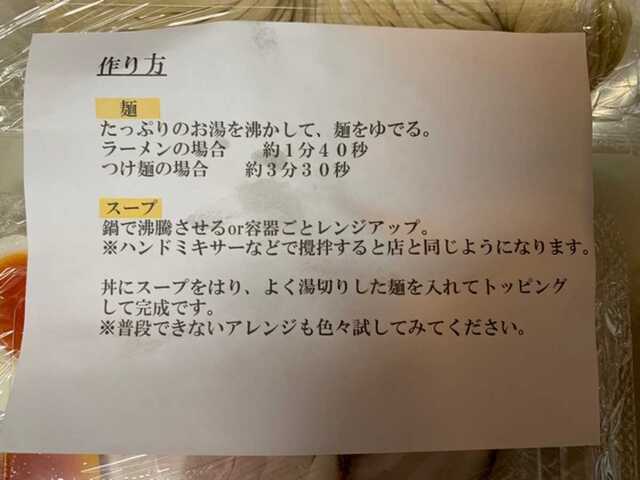 作り方
麺
たっぷりのお湯を沸かして、麺をゆでる。
ラーメンの場合　　約１分４０秒
つけ麺の場合　　約３分３０秒
スープ
鍋で沸騰させるor容器ごとレンジアップ。
※ハンドミキサーなどで攪拌すると店と同じようになります。
丼にスープをはり、よく湯切りした麺を入れてトッピング
して完成です。
※普段できないアレンジも色々試してみてください。